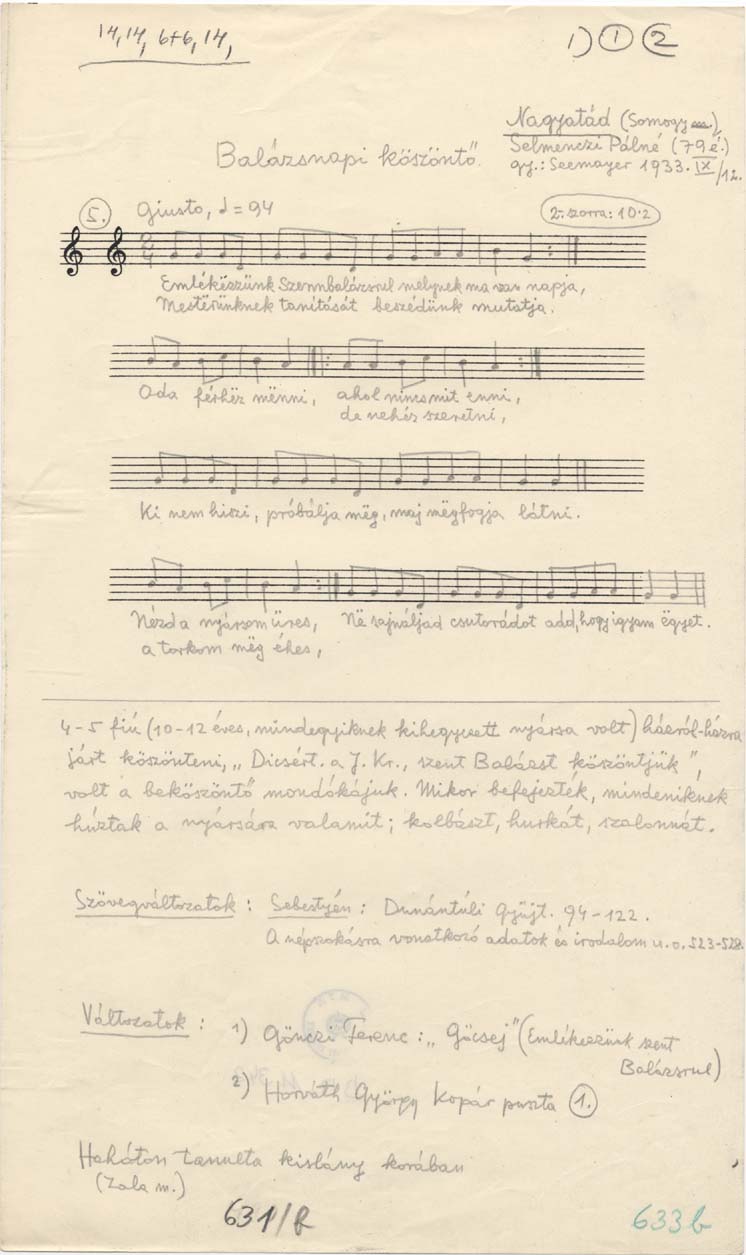 14,14, 6+6, 14,
1) 1 2
Nagyatád (Somogy m.)
Selmenczi Pálné (79 é.)
gy.: Seemayer 1933. IX/12.
Balázsnapi köszöntő.
5. Giusto, = 94
2. sorra: 10.2
2 4
Emlékëzzünk Szennbalázsrul melynek ma van napja,
Mestërünknek tanítását beszédünk mutatja.
Oda férhëz mënni, ahol nincs mit enni,
de nehéz szeretni,
Ki nem hiszi, próbálja mëg, maj mëgfogja látni.
Nézd a nyársom üres, Në sajnáljad csutorádot add, hogy igyam ëgyet.
a torkom mëg éhes,
4-5 fiú (10-12 éves, mindegyiknek kihegyezett nyársa volt) házról-házra
járt köszönteni, „Dicsért. a J. Kr., szent Balázst köszöntjük”,
volt a beköszöntő mondókájuk. Mikor befejezték, mindeniknek
húztak a nyársára valamit; kolbászt, hurkát, szalonnát.
Szövegváltozatok: Sebestyén: Dunántúli gyűjt. 94-122.
A népszokásra vonatkozó adatok és irodalom u.o. 523-528.
Változatok: 1) Gönczi Ferenc: „Göcsej” (Emlékezzünk szent
Balázsrul)
2) Horváth György Kopár puszta 1.
Hahóton tanulta kislány korában
(Zala m.)
631/b
633b